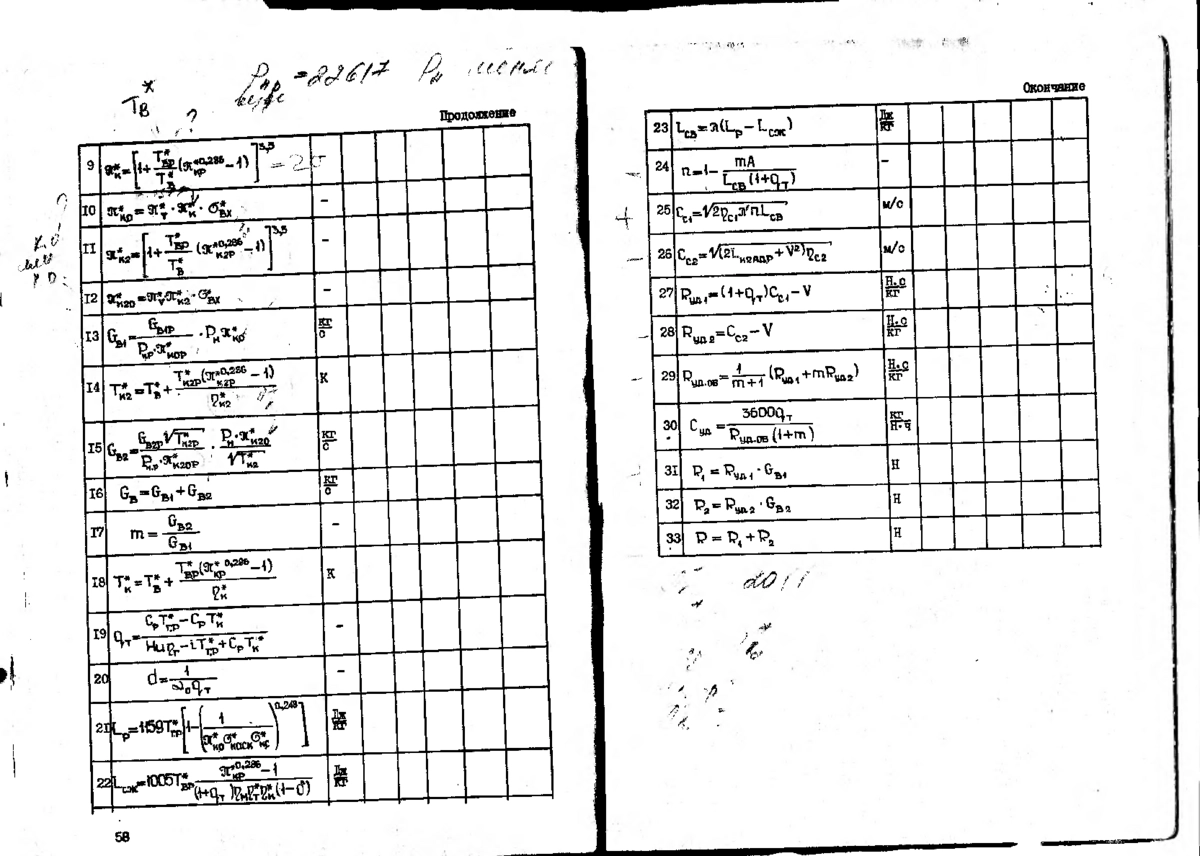 T_В^*
= 22617 Р_н
Продолжение
9 π_к^* = [1 + T_ВР^*/T_В^* (π_кр^{*0,286} − 1)]^{3,5} = 20
10 π_к0^* = π_V^* · π_к^* · σ_ВХ^* –
11 π_к2^* = [1 + T_ВР^*/T_В^* (π_к2Р^{*0,286} − 1)]^{3,5} –
12 π_к20^* = π_V^* · π_к2^* · σ_ВХ^* –
13 G_В1 = G_В1Р/(Р_нр · π_к0Р^*) · Р_н π_к0^* кг/с
14 T_к2^* = T_В^* + T_к2Р^*(π_к2Р^{*0,286} − 1)/η_к2^* К
15 G_В2 = G_В2Р √T_к2Р^*/(Р_н.р · π_к20Р^*) · Р_н · π_к20^*/√T_к2^* кг/с
16 G_В = G_В1 + G_В2 кг/с
17 m = G_В2/G_В1 –
18 T_к^* = T_В^* + T_ВР^*(π_кр^{*0,286} − 1)/η_к^* К
19 q_т = (C_р T_г.р^* − C_р T_к^*)/(Нu η_г − i T_г.р^* + C_р T_к^*) –
20 d = 1/(α_0 q_т) –
21 L_р = 1159 T_г.р^* [1 − (1/(π_к0^* σ_коск^* σ_кс^*))^{0,248}] Дж/кг
22 L_сж = 1005 T_ВР^* (π_кр^{*0,286} − 1)/((1 + q_т) η_м η_т^* η_к^* (1 − δ)) Дж/кг
58
Окончание
23 L_св = λ(L_р − L_сж) Дж/кг
24 n = 1 − mA/(L_св (1 + q_т)) –
25 C_с1 = √(2η_с1 λ n L_св) м/с
26 C_с2 = √((2L_к2адр + V²) η_с2) м/с
27 R_уд1 = (1 + q_т) C_с1 − V Н.с/кг
28 R_уд2 = C_с2 − V Н.с/кг
29 R_уд.ов = 1/(m + 1) (R_уд1 + m R_уд2) Н.с/кг
30 C_уд = 3600 q_т/(R_уд.ов (1 + m)) кг/Н.ч
31 R_1 = R_уд1 · G_В1 Н
32 R_2 = R_уд2 · G_В2 Н
33 R = R_1 + R_2 Н